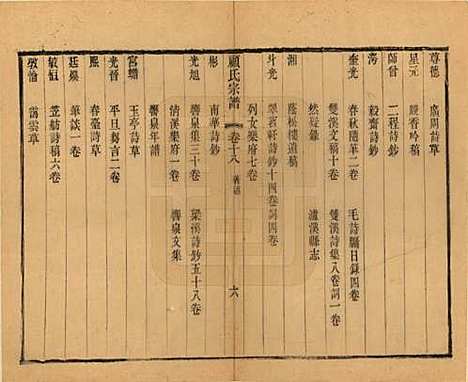 尊德　廣閒詩草
星元　綏香吟稿
師曾　二程詩鈔
澐　毅齋詩鈔
奎光　春秋隨筆二卷　毛詩關日錄四卷
雙溪文稿十卷　雙溪詩集八卷詞一卷
然疑錄　瀘溪縣志
湘　蔭松樓遺稿
斗光　翠苕軒詩鈔十四卷詞四卷
列女樂府七卷
顧氏宗譜　卷十八　著述　六
彬　南華詩鈔
光旭　響泉集三十卷　梁溪詩鈔五十八卷
清溪樂府一卷　響泉文集
響泉年譜
宮蟾　玉亭詩草
光晉　平旦芻言二卷
熙　春臺詩草
廷燥　筆談一卷
敏恒　笠舫詩稿六卷
敩怡　靄雲草